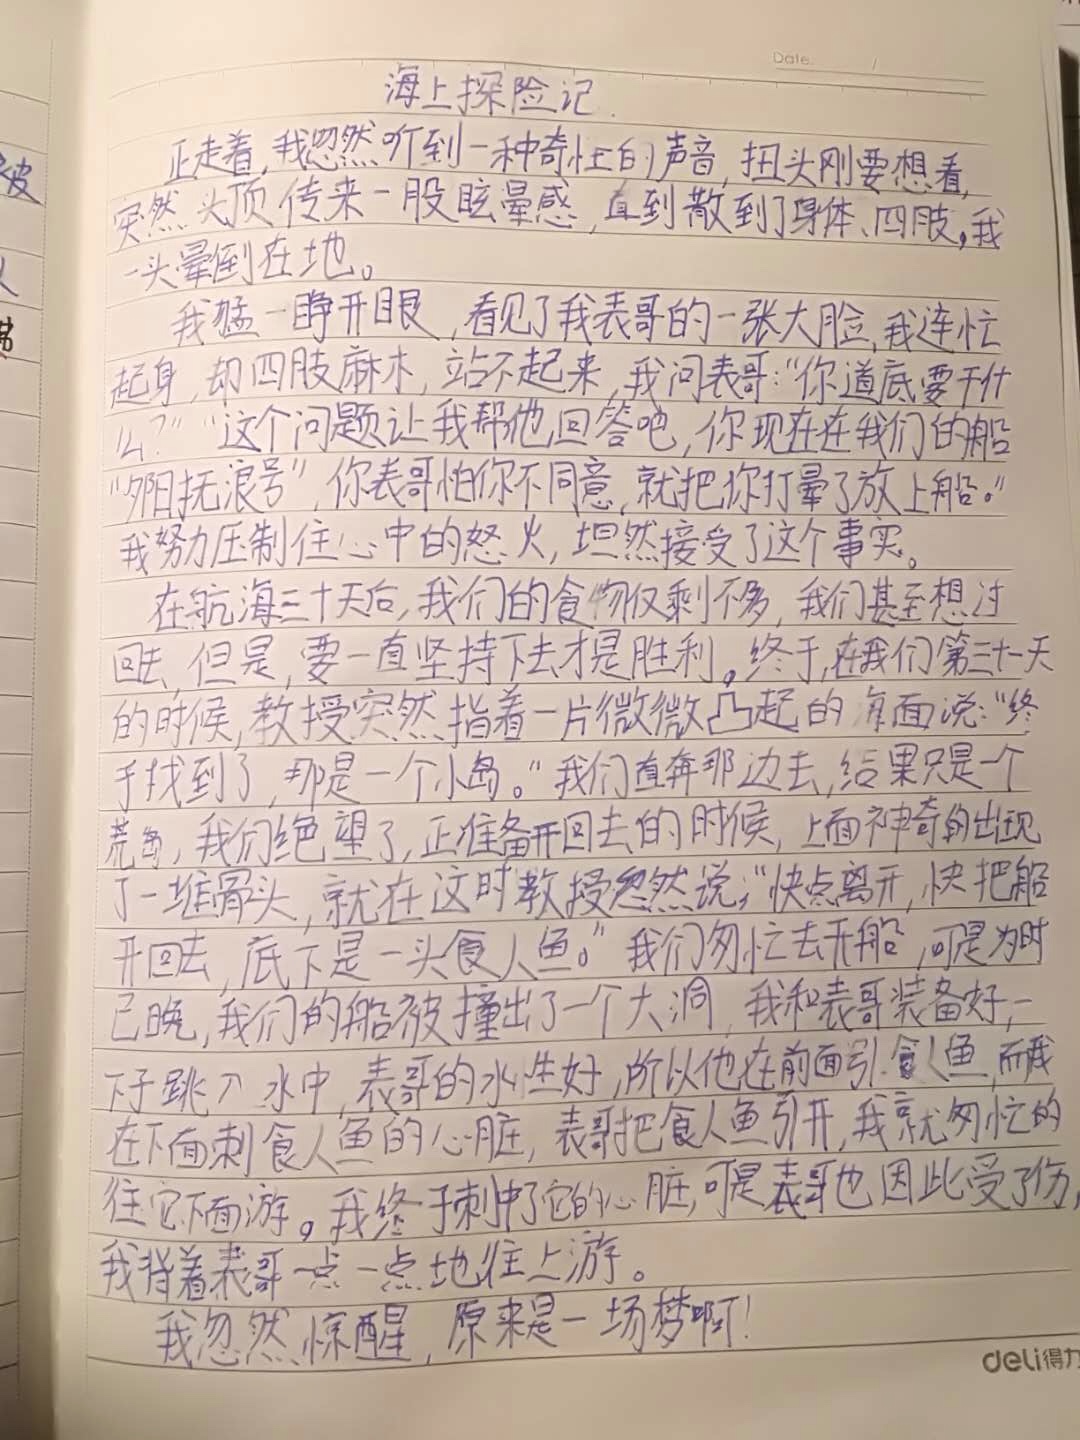 Date: /
海上探险记
正走着,我忽然听到一种奇怪的声音,扭头刚要想看,
突然头顶传来一股眩晕感,直到散到了身体、四肢。我
一头晕倒在地。
我猛一睁开眼,看见了我表哥的一张大脸,我连忙
起身,却四肢麻木,站不起来,我问表哥:“你道底要干什
么?”“这个问题让我帮他回答吧,你现在在我们的船
“夕阳抚浪号”,你表哥怕你不同意,就把你打晕了放上船。”
我努力压制住心中的怒火,坦然接受了这个事实。
在航海三十天后,我们的食物仅剩不多,我们甚至想过
回去,但是,要一直坚持下去才是胜利。终于,在我们第三十一天
的时候,教授突然指着一片微微凸起的海面说:“终
于找到了,那是一个小岛。”我们直奔那边去,结果只是一个
荒岛,我们绝望了,正准备开回去的时候,上面神奇的出现
了一堆骨头,就在这时教授忽然说:“快点离开,快把船
开回去,底下是一头食人鱼。”我们匆忙去开船,可是为时
已晚,我们的船被撞出了一个大洞,我和表哥装备好,一
下子跳入水中,表哥的水性好,所以他在前面引食人鱼,而我
在下面刺食人鱼的心脏,表哥把食人鱼引开,我就匆忙的
往它下面游。我终于刺中了它的心脏,可是表哥也因此受了伤,
我背着表哥一点一点地往上游。
我忽然惊醒,原来是一场梦啊!
deli得力
被
人